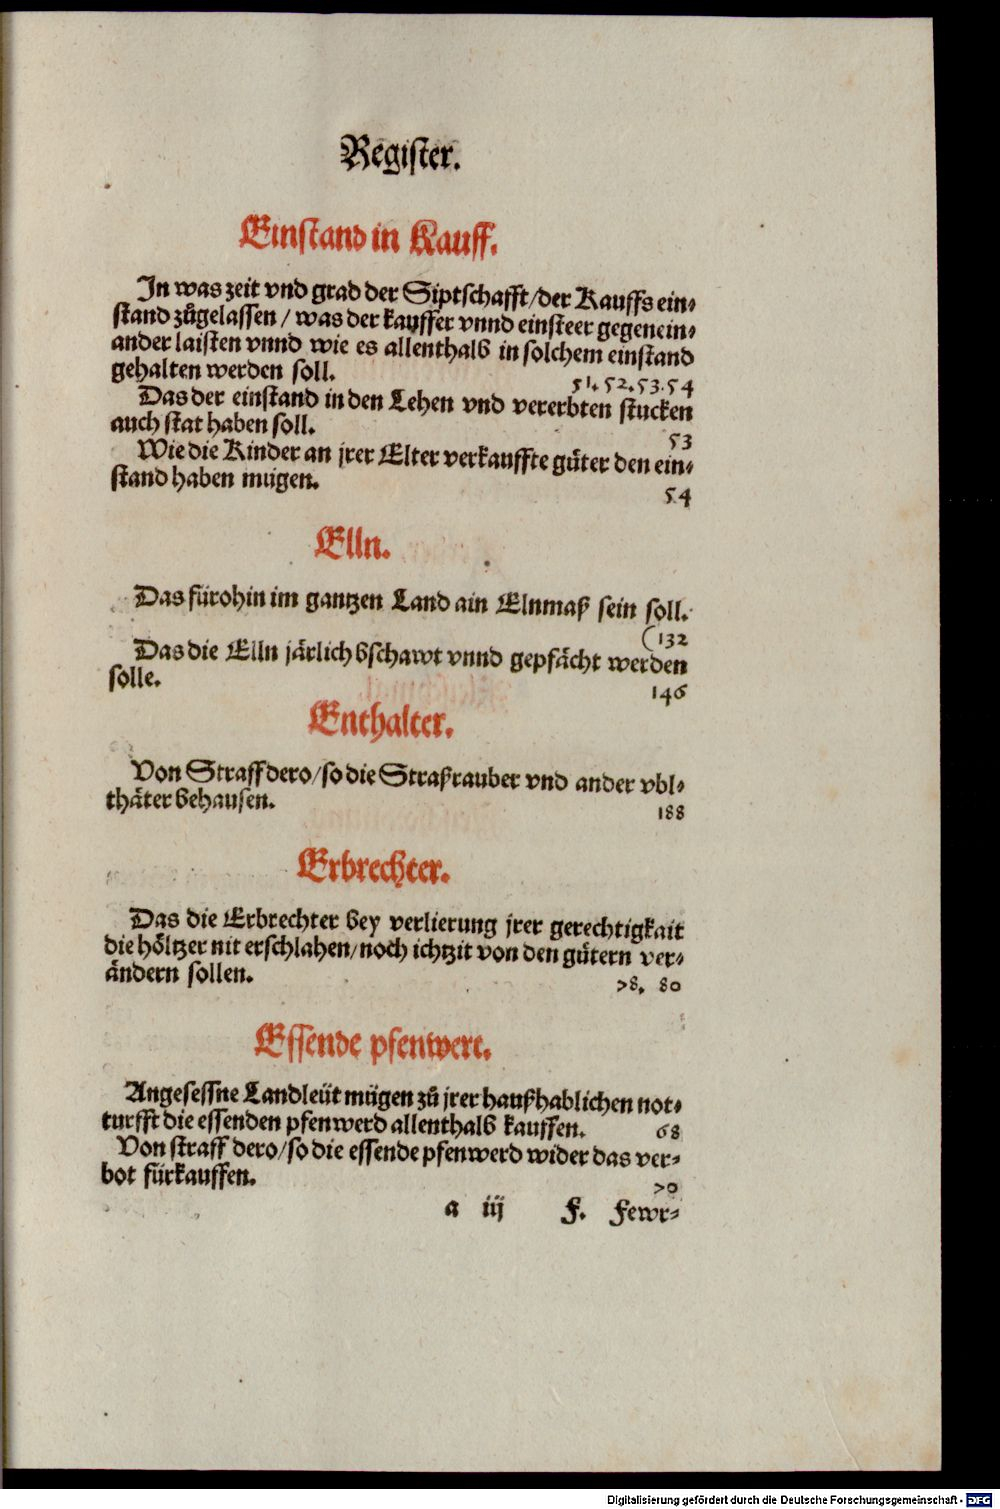 Register.
Einstand in Kauff.
In was zeit vnd grad der Siptschafft/der Kauffs ein⸗
stand zůgelassen / was der kauffer vnnd einsteer gegenein⸗
ander laisten vnnd wie es allenthalb in solchem einstand
gehalten werden soll. 51. 52. 53. 54
Das der einstand in den Lehen vnd vererbten stucken
auch stat haben soll. 53
Wie die Kinder an jrer Elter verkauffte gůter den ein⸗
stand haben mugen. 54
Elln.
Das fürohin im gantzen Land ain Elnmaß sein soll.
(132
Das die Elln järlich bschawt vnnd gepfächt werden
solle. 146
Enthalter.
Von Straff dero/so die Straßrauber vnd ander vbl⸗
thäter behausen. 188
Erbrechter.
Das die Erbrechter bey verlierung jrer gerechtigkait
die höltzer nit erschlahen/noch ichtzit von den gütern ver⸗
ändern sollen. 78. 80
Essende pfenwert.
Angesessne Landleüt mügen zů jrer haußhablichen not⸗
turfft die essenden pfenwerd allenthalb kauffen. 68
Von straff dero/so die essende pfenwerd wider das ver⸗
bot fürkauffen. 70
a iij F. Fewr⸗
Digitalisierung gefördert durch die Deutsche Forschungsgemeinschaft - DFG